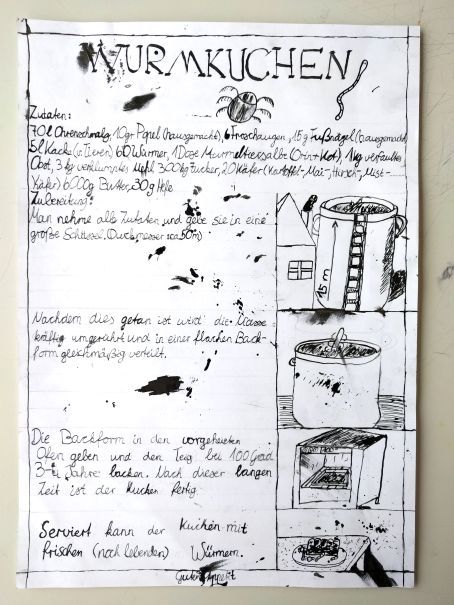 WURMKUCHEN
Zutaten:
70l Ohrenschmalz, 10gr Popel (hausgemacht), 6 Froschaugen, 15g Fußnägel (hausgemacht)
5l Kacke (v. Tieren) 60 Würmer, 1 Dose Murmeltiersalbe (Orin + Kot), 1kg verfaultes
Obst, 3 kg Mehl 300kg Zucker, 20 Käfer (Kartoffel- Mai-, Hirsch-, Mist-
Käfer) 6000g Butter, 30g Hefe
Zubereitung:
Man nehme alle Zutaten und gebe sie in eine
große Schüssel. (Durchmesser ca 50m)
15 m
Nachdem dies getan ist wird die Masse
kräftig umgerührt und in einer flachen Back-
form gleichmäßig verteilt.
Die Backform in den vorgeheizten
Ofen geben und den Teig bei 100 Grad
Jahre backen. Nach dieser langen
Zeit ist der Kuchen fertig.
Serviert kann der Kuchen mit
frischen (noch lebenden) Würmern.
Guten Appetit